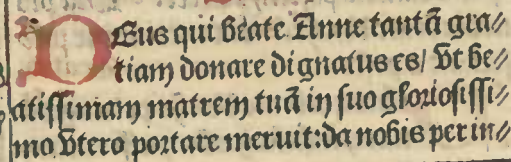 DEus qui beate Anne tantã gra⸗
tiam donare dignatus es/ vt be⸗
atiſſimam matrem tuã in ſuo glorioſiſſi⸗
mo vtero portare meruit: da nobis per in⸗